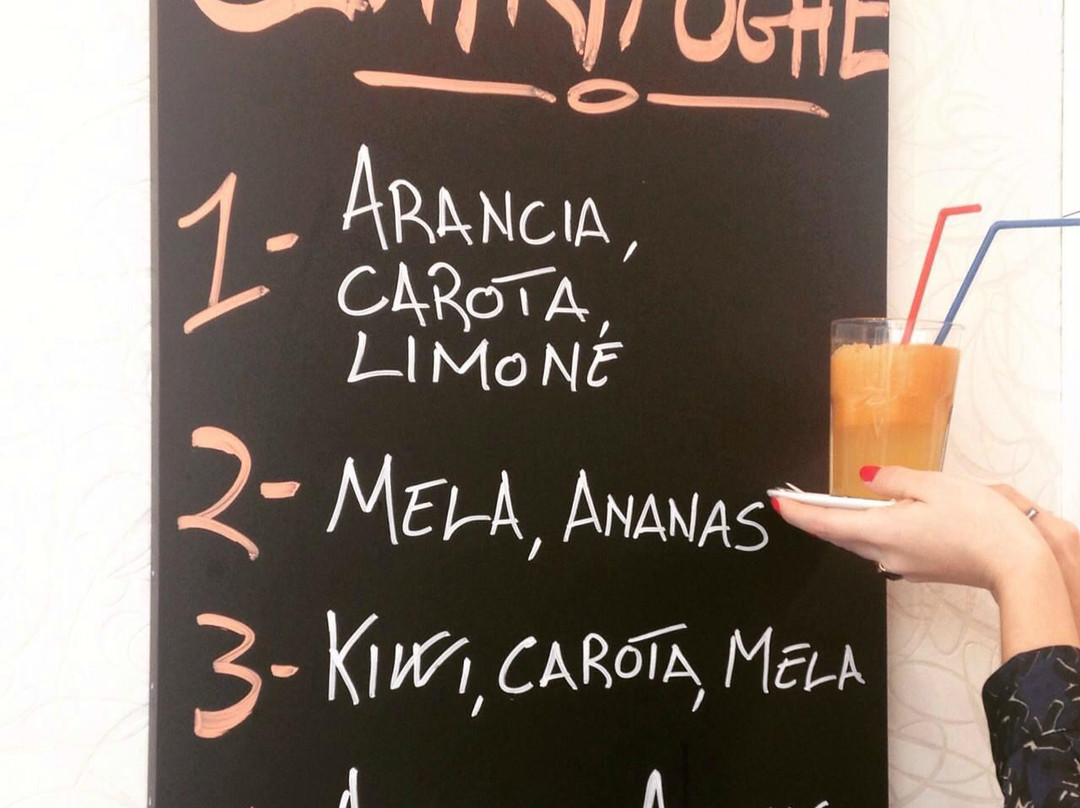 CENTRIFUGHE
1- ARANCIA,
CAROTA,
LIMONE
2- MELA, ANANAS
3- KIWI, CAROTA, MELA